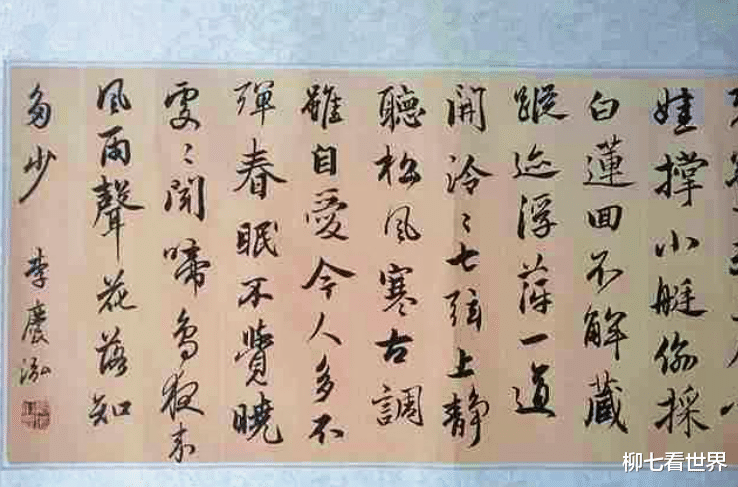 娃撑小艇偷採
白蓮回不解藏
蹤迹浮萍一道
開泠〻七弦上静
聽松風寒古調
雖自愛今人多不
彈春眠不覺曉
處〻聞啼鳥夜来
風雨聲花落知
多少 李慶泓
柳七看世界